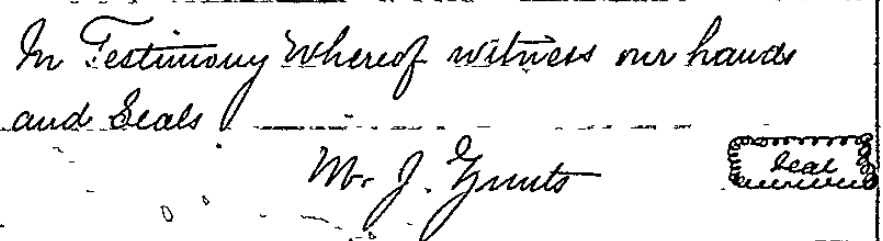 In Testimony Whereof witness our hands
and Seals
J.
Seal